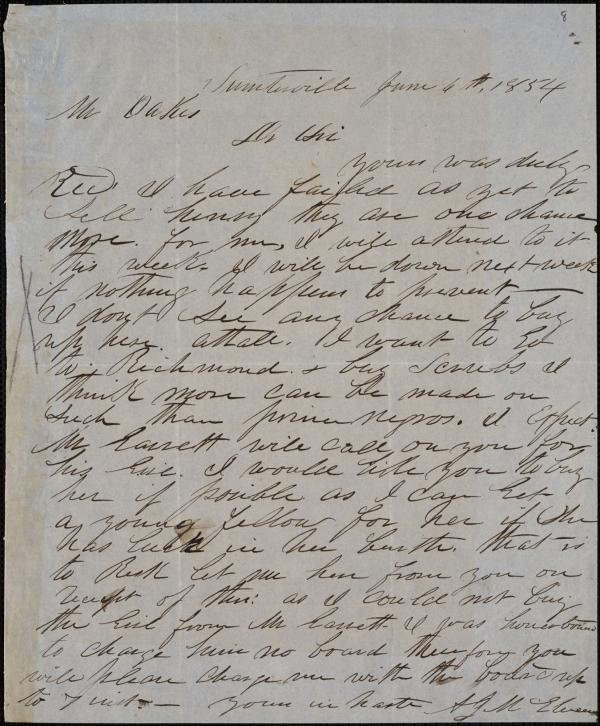 8
Sumterville June 6th, 1854
Mr Oakes
Dr Sir
yours was duly
Recd I have failed as yet to
Sell henry they are one chance
more. for me, I will attend to it
this week. I will be down next week
if nothing happens to prevent —
I dont See any chance to buy
up here. attall. I want to Go
to. Richmond. & buy Scrubs I
think more can be made on
Such than prime negros. I Expect.
Mr Garrett will call on you for
his Girl. I would like you to buy
her if posible as I can Get
a young fellow for her if She
has luck in her burth. that is
to Risk let me hear from you on
receipt of this: as I could not buy
the Girl from Mr Garrett I was honorbound
to charge him no board therefore you
will please charge me with the board up
to 7 inst. — yours in haste A J McElveen